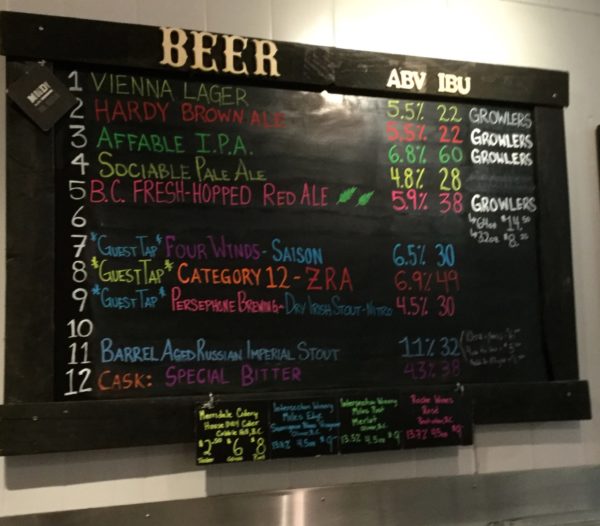 BEER
ABV IBU
1 VIENNA LAGER 5.5% 22 GROWLERS
2 HARDY BROWN ALE 5.5% 22 GROWLERS
3 AFFABLE I.P.A. 6.8% 60 GROWLERS
4 SOCIABLE PALE ALE 4.8% 28
5 B.C. FRESH-HOPPED RED ALE 5.9% 38 GROWLERS
64oz $14.50
6 32oz $8.
7 *GUEST TAP* FOUR WINDS - SAISON 6.5% 30
8 *GUEST TAP* CATEGORY 12 - ZRA 6.9% 49
9 *GUEST TAP* PERSEPHONE BREWING - DRY IRISH STOUT - NITRO 4.5% 30
10
11 BARREL AGED RUSSIAN IMPERIAL STOUT 11% 32
12 CASK: SPECIAL BITTER 4.3% 38
Merridale Cidery
House Dry Cider
Cobble Hill, B.C.
$2.50 $6 $8
Intersection Winery
Milos Edge
Intersection Winery
Milos Post
Merlot
13.5% 4.5oz $9
Rosé
13.7% 4.5oz $9